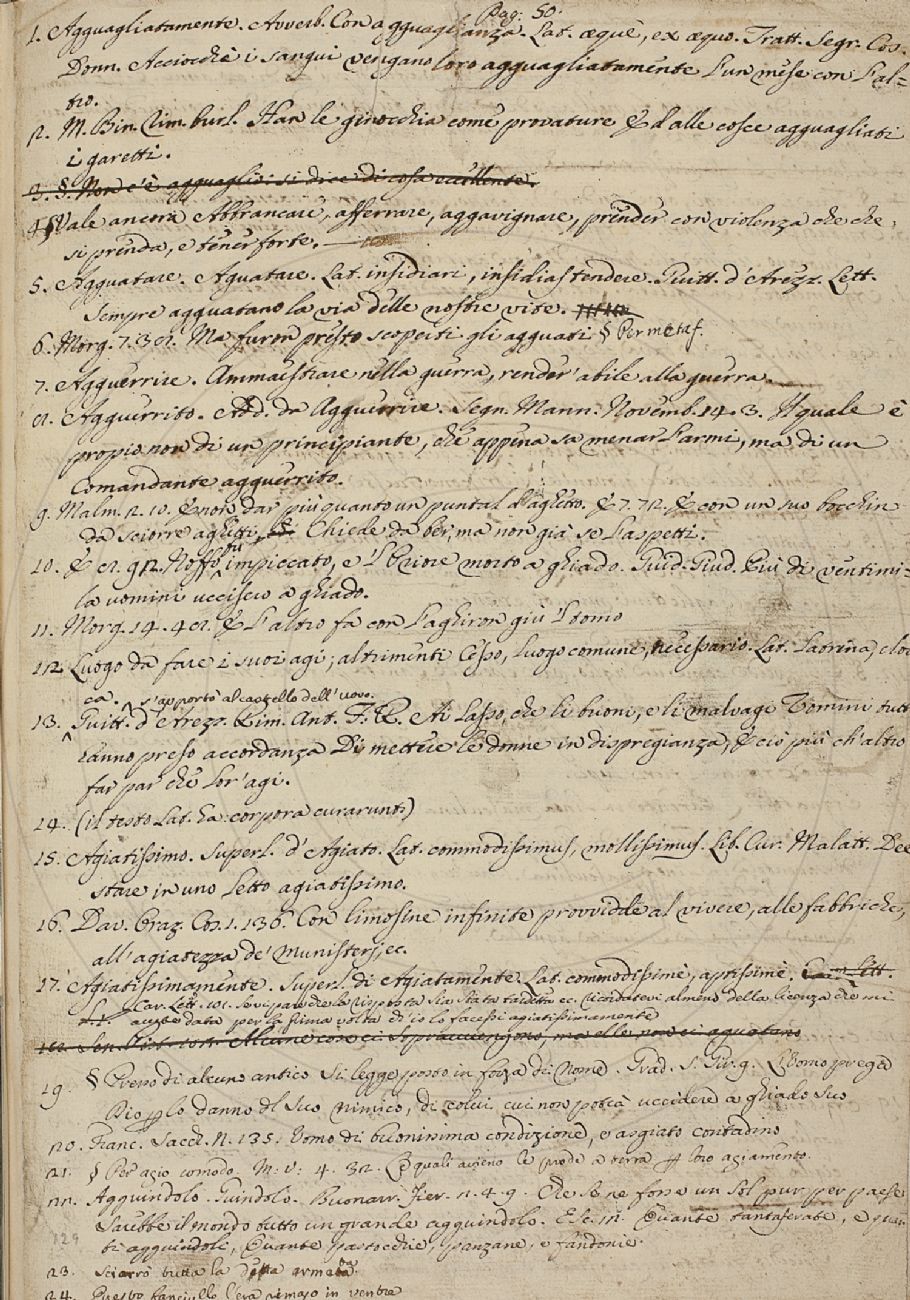 Pag. 50.
1. Agguagliatamente. Avverb. Con agguaglianza. Lat. æquè, ex æquo. Tratt. Segr. Cos.
Donn. Acciocchè i sangui vengano loro agguagliatamente l'un mese con l'al=
tro.
2. M. Bin. rim. burl. Han le ginocchia come provature E dalle cosce agguagliati
i garetti.
3. §. Non c'è agguaglio: si dice di cosa eccellente.
4. § Vale ancora Abbrancare, afferrare, aggavignare, prender con violenza che che
si prenda, e tener forte.
5. Agguatare. Aguatare. Lat. insidiari, insidias tendere. Guitt. d'Arezz. Lett.
Sempre agguatano la via delle nostre vite.
6. Morg. 7. 38. Ma furon presto scoperti gli agguati § Per metaf.
7. Agguerrire. Ammaestrare nella guerra, render' abile alla guerra.
8. Agguerrito. Add. da Agguerrire. Segn. Mann. Novemb. 14. 3. Il quale è
propio non di un principiante, che appena sa menar l'armi, ma di un
Comandante agguerrito.
9. Malm. 2. 10. E non dar più quanto un puntal d'aghetto. E 7. 72. E con un suo bocchin
da sciorre aghetti, Chiede da ber, ma non già se l'aspetti.
10. E 8. 92. Noffo impiccato, e 'l Priore morto a ghiado. Guid. Giud. Più di ventimi=
la uomini uccisero a ghiado.
11. Morg. 14. 48. E l'altro fa con l'aghiron giù 'l tomo
12. Luogo da fare i suoi agi; altrimenti Cesso, Luogo comune, necessario. Lat. Latrina, cloa
ca. s'apportò al castello dell'uovo.
13. Guitt. d'Arezz. Rim. Ant. F. R. Ai lasso, che li buoni, e li malvagi Uomini tutt
hanno preso accordanza Di mettere le donne in dispregianza, E ciò più ch'altro
far par che lor' agi.
14. (il testo Lat. ha: corpora curarunt)
15. Agiatissimo. Superl. d'Agiato. Lat. commodissimus, mollissimus. Lib. Cur. Malatt. Dee
stare in uno letto agiatissimo.
16. Dav. Oraz. Cos. 1. 136. Con limosine infinite provvidde al vivere, alle fabbriche,
all'agiatezza de' Munisterj, ec.
17. Agiatissimamente. Superl. di Agiatamente. Lat. commodissimè, aptissimè. Car. Lett.
Car. Lett. Se vi pare che la risposta sia stata tardetta ec. ricordatevi almeno della licenza che mi
avete data per la prima volta ch'io lo facessi agiatissimamente
18. Sen. Pist. Alcune cose ci sopraccengono, ma elle non ci aguatano
19. § Presso di alcuno antico si legge posto in forza di Nome. Trad. S. Gir. g. L'Uomo prega
Dio per lo danno del suo nimico, di colui, cui non potea uccidere a ghiado suo
20. Franc. Sacch. N. 135. Uomo di buonissima condizione, e asgiato contadino
21. § Per agio comodo. M: V: 4. 32. E quali aveno le prode a terra per loro agiamento.
22. Agguindolo. Guindolo. Buonarr. Fier. 2. 4. 9. Che se ne fosse un sol pur per paese
Sarebbe il mondo tutto un grande agguindolo. E Sc. 18. Quante tantaferate, e quan
ti agguindoli, Quante pastocchie, panzane, e fandonie.
129
23. sciarrò tutta la detta armata.
24. Questo fanciullo l'era rimaso in ventre